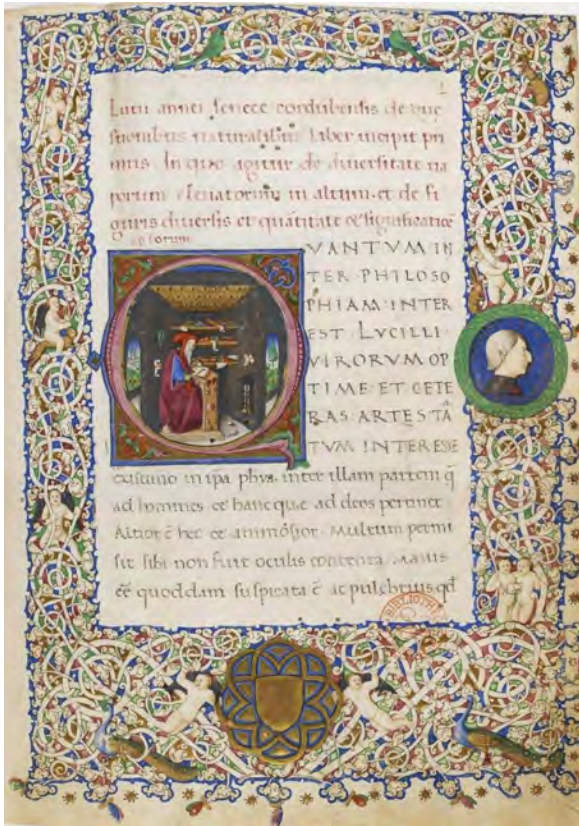 Lutii annei senece cordubensis de que
stionibus naturalibus liber incipit pri
mus In quo agitur de diversitate va
porum elevatorum in altum et de fi
guris diversis et quantitate et significatiõe
ipsorum
QVANTVM IN
TER PHILOSO
PHIAM INTER
EST LVCILLI
VIRORVM OP
TIME ET CETE
RAS ARTES TÃ
TVM INTERESSE
existimo in ip̃a phỹa inter illam partem q̃
ad homines et hanc que ad deos pertinet
Altior ẽ hec et animosior Multum permi
sit sibi non fuit oculis contenta Maius
eẽ quoddam suspicata ẽ ac pulchrius qđ
BIBLIOTH